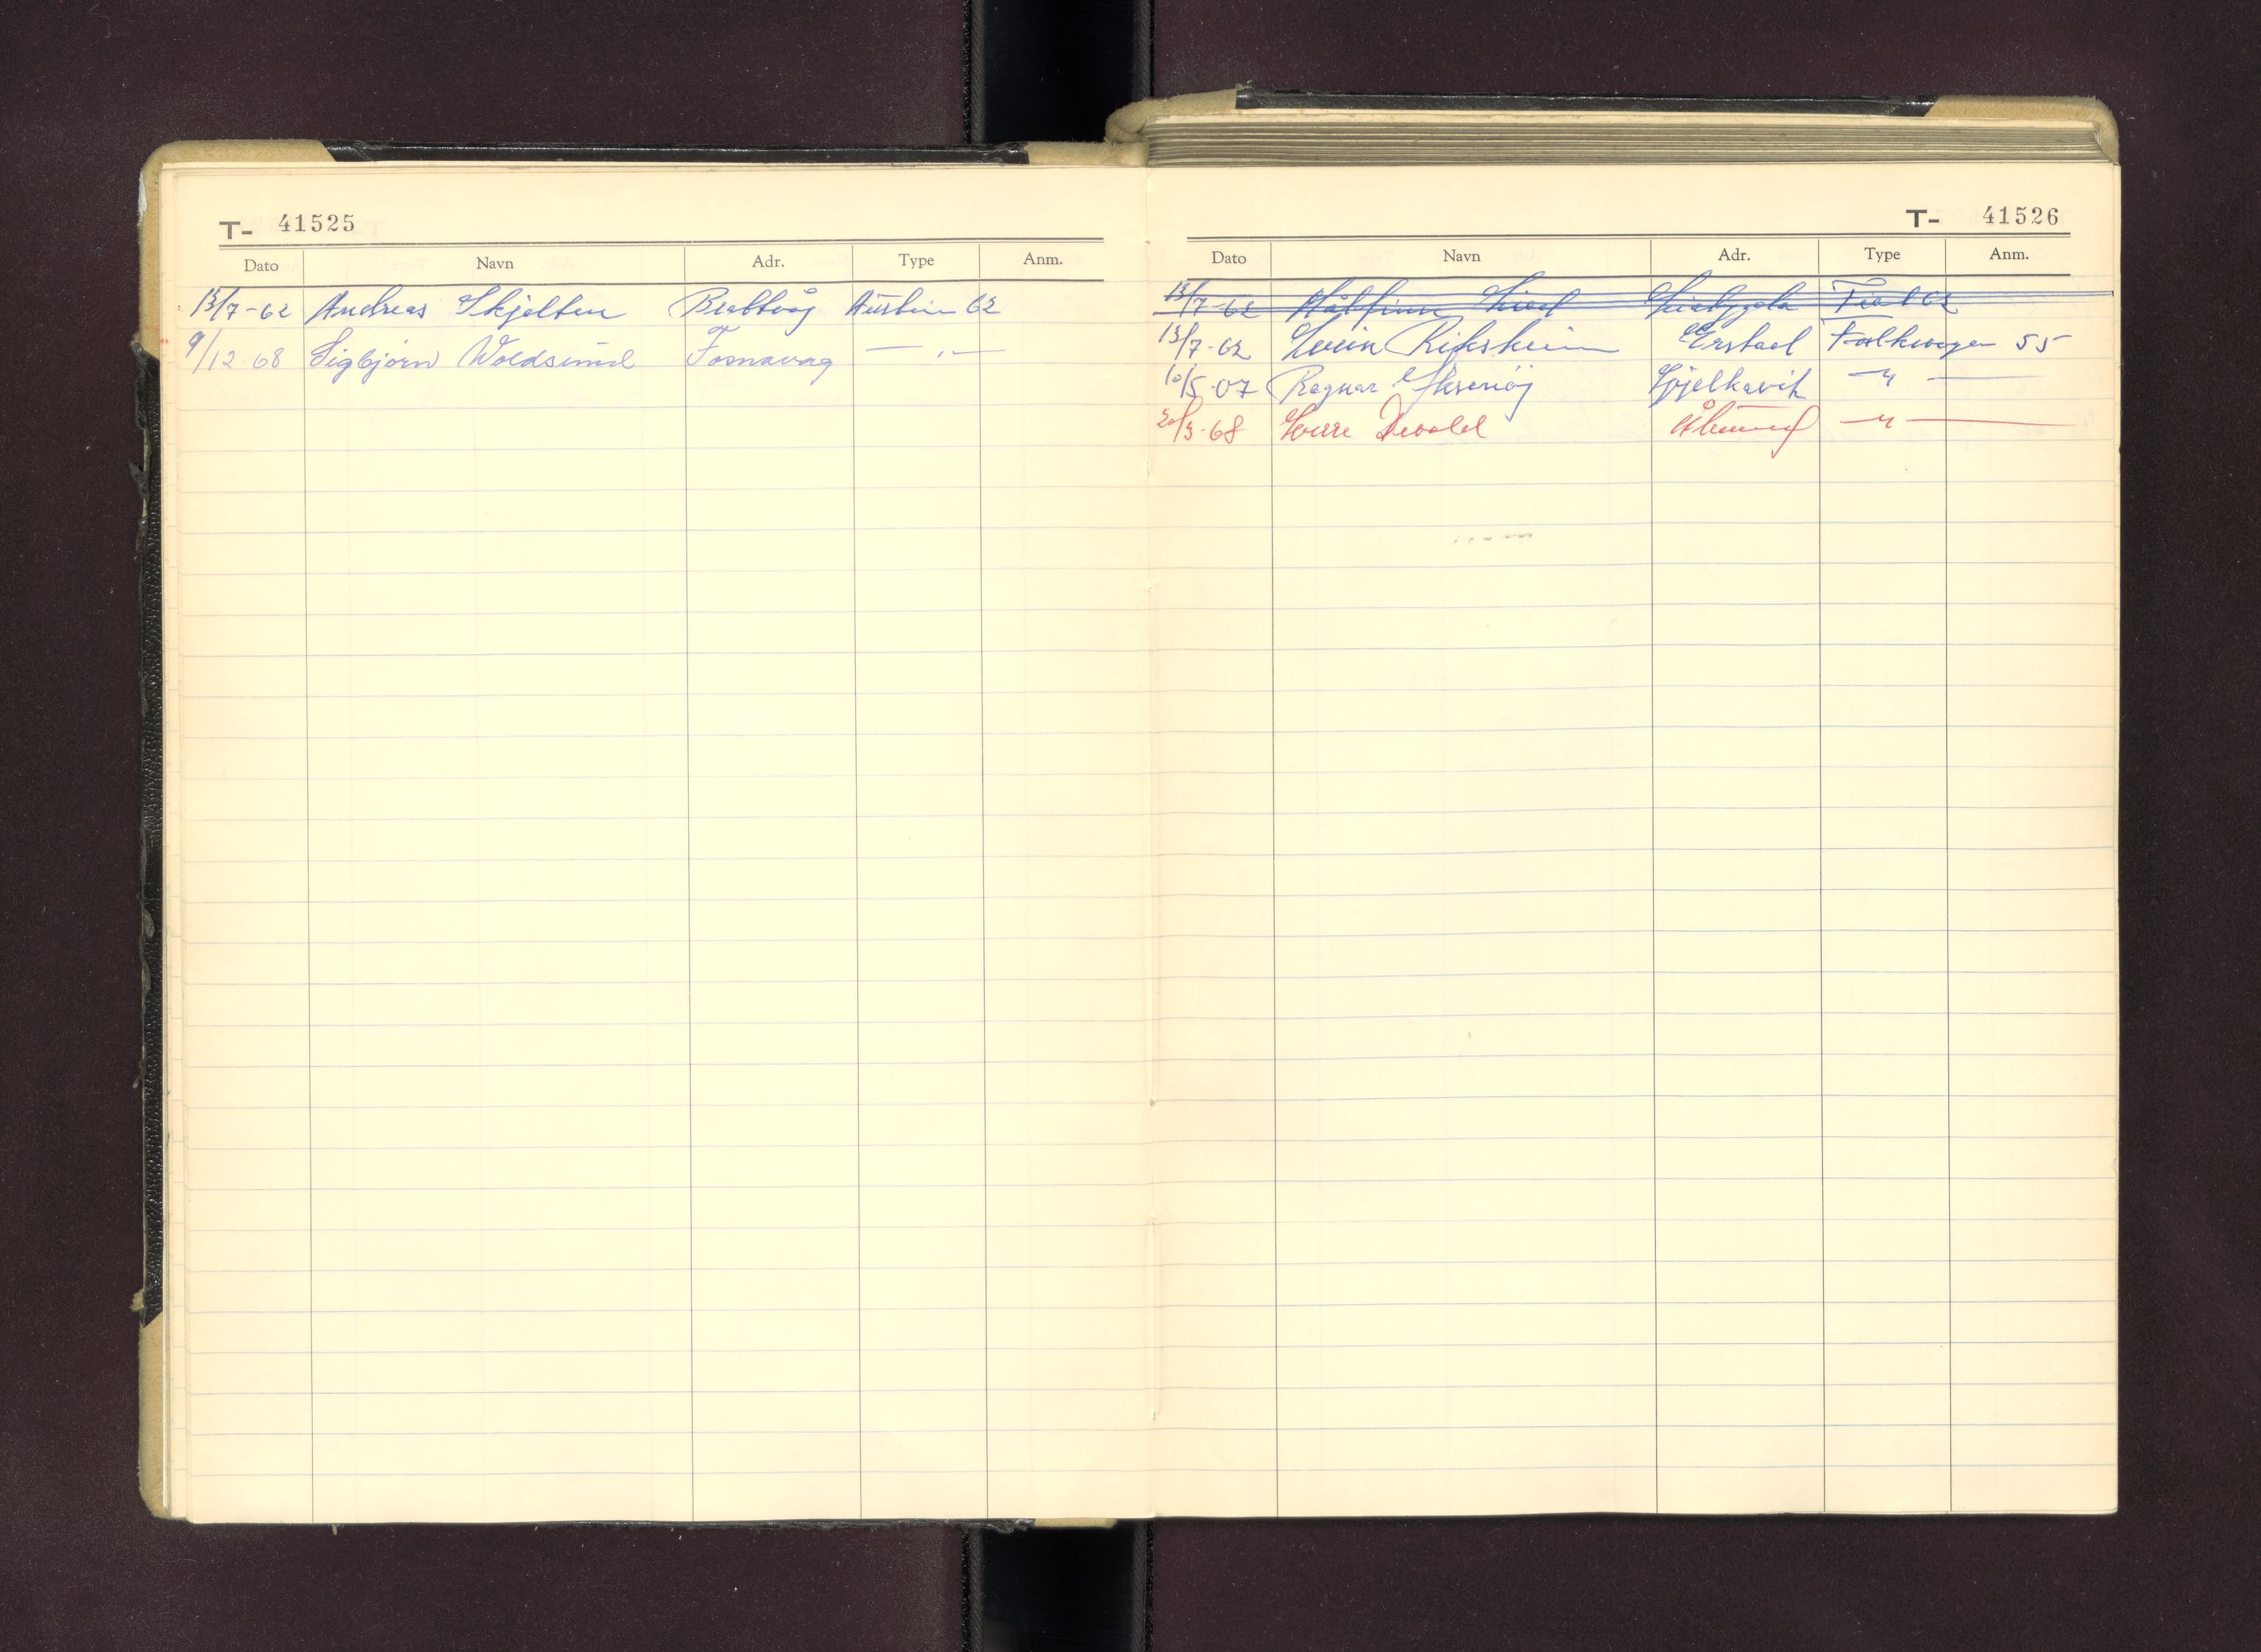 T- 41525
Dato Navn Adr. Type Anm.
13/7-62 Andreas Skjelten Brattvåg Austin 62
9/12-68 Sigbjørn Voldsund Fosnavåg — " —
T- 41526
Dato Navn Adr. Type Anm.
13/7-62 Fiat 62
13/7-62 Svein Riksheim Ørstad Folkwogen 55
10/5-67 Ragnar Spjelkavik — " —
20/3-68 Sverre Devold Ålesund — " —